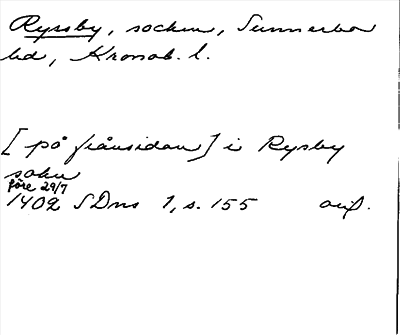 Ryssby, socken, Sunnerbo
hd, Kronob. l.
[på framsidan] i Rysby
sokn
före 29/7
1402 SDns 1, s. 155 avsk.